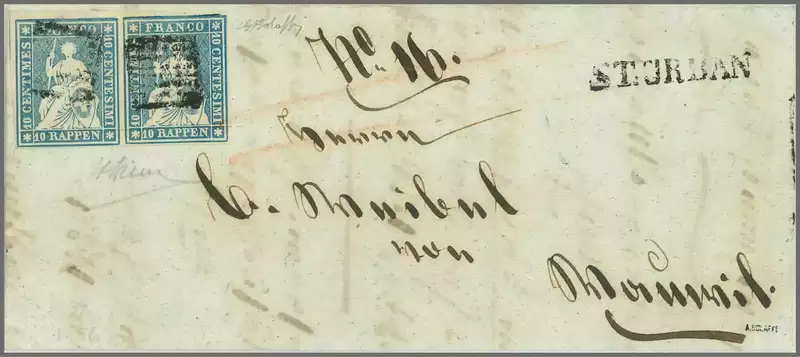 FRANCO FRANCO
10 CENTIMES 10 CENTESIMI
10 CENTIMES 10 CENTESIMI
10 RAPPEN 10 RAPPEN
No. 16.
ST. URBAN
Herrn
von
Wauwil.
A. BOLAFFI